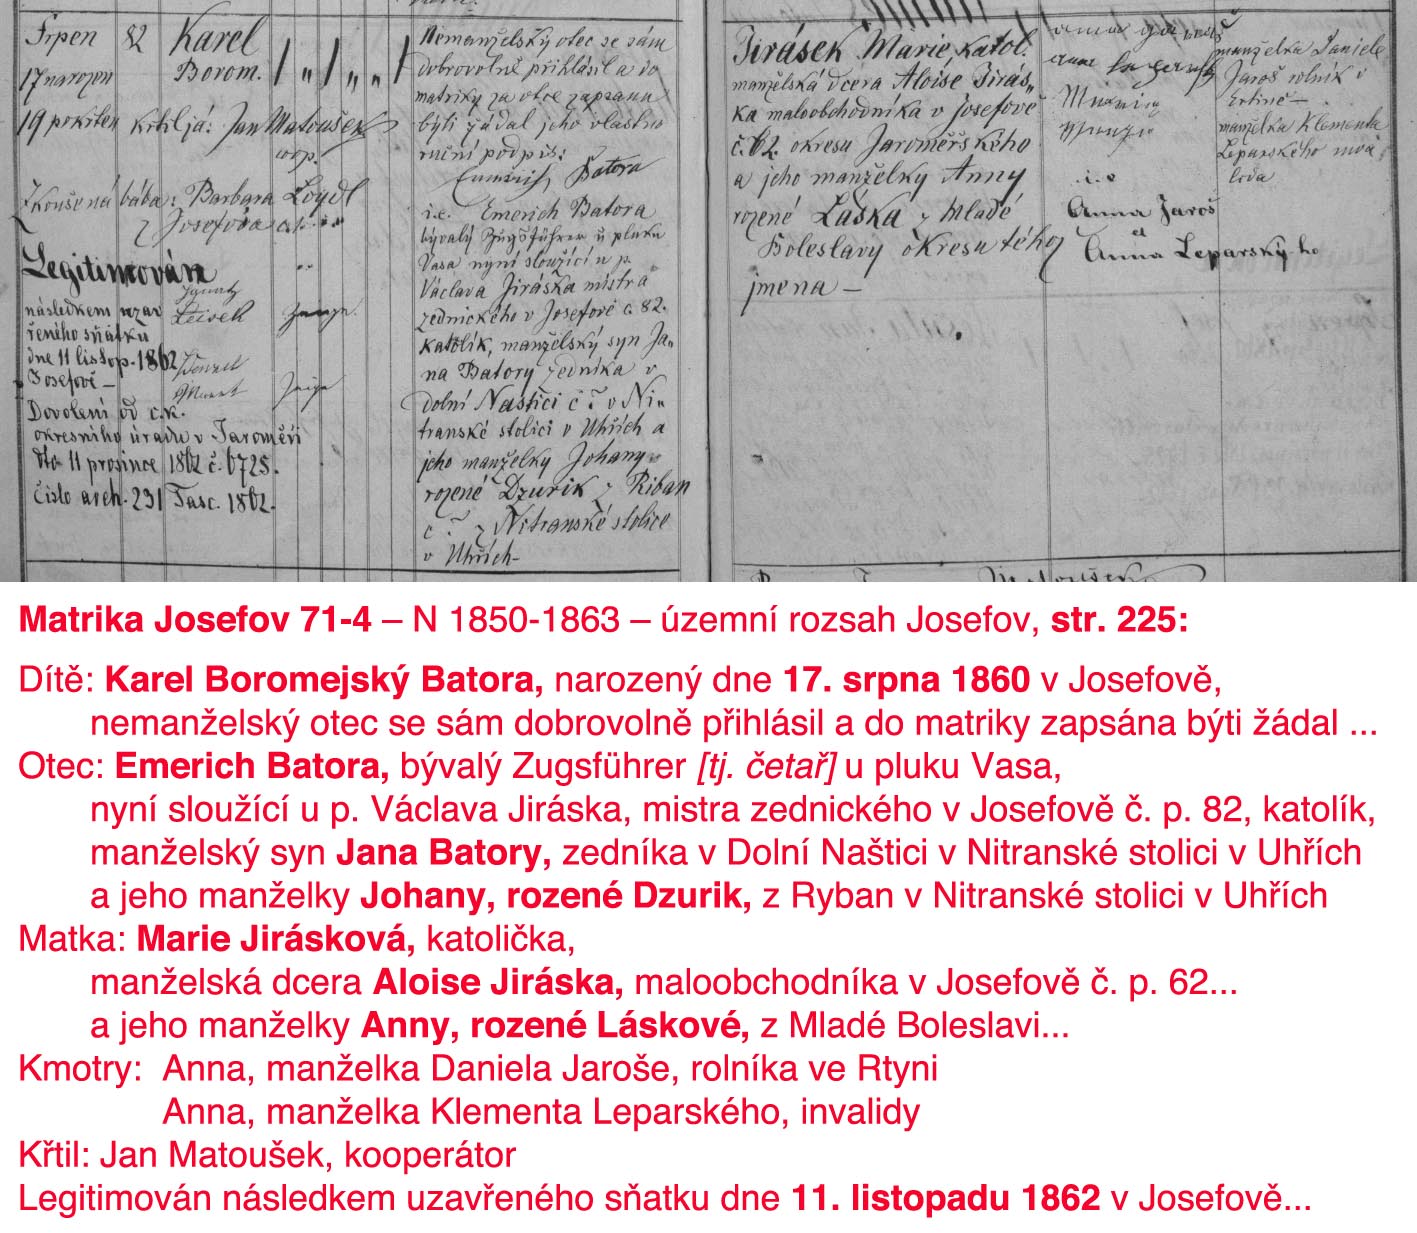 Srpen 82 Karel
17 narozen Borom. 1 „ 1 „ „ 1
19 pokřtěn křtil já: Jan Matoušek
coop.
Zkoušená bába: Barbara Loydl
z Josefova
Legitimován
následkem uzav
řeného sňatku
dne 11 listop. 1862
Josefově –
Dovolení od c.k.
okresního úřadu v Jaroměři
dto 11 prosince 1862 č. 6725.
Číslo arch. 231 Fasc. 1862.
Nemanželský otec se sám
dobrovolně přihlásil a do
matriky za otce zapsánu
býti žádal jeho vlastno
ruční podpis:
Emerich Batora
i.e. Emerich Batora
bývalý Zugsführer u pluku
Vasa nyní sloužící u p.
Václava Jiráska mistra
zednického v Josefově č. 82.
katolík, manželský syn Ja„
na Batory zedníka v
dolní Naštici č ? v Ni„
transké stolici v Uhřích a
jeho manželky Johany
rozené Dzurik z Riban
č ? z Nitranské stolice
v Uhřích–
Jirásek Marie, katol.
manželská dcera Aloise Jirás„
ka maloobchodníka v Josefově
č. 62. okresu Jaroměřského
a jeho manželky Anny
rozené Láska z Mladé
Boleslavy okresu téhož
jmena –
i. e
Anna Jaroš
et
Anna Leparský-ho
manželka Daniele
Jaroš rolník v
Rtině –
manželka Klementa
Leparského inva
lida
Matoušek
Matrika Josefov 71-4 – N 1850-1863 – územní rozsah Josefov, str. 225:
Dítě: Karel Boromejský Batora, narozený dne 17. srpna 1860 v Josefově,
nemanželský otec se sám dobrovolně přihlásil a do matriky zapsána býti žádal ...
Otec: Emerich Batora, bývalý Zugsführer [tj. četař] u pluku Vasa,
nyní sloužící u p. Václava Jiráska, mistra zednického v Josefově č. p. 82, katolík,
manželský syn Jana Batory, zedníka v Dolní Naštici v Nitranské stolici v Uhřích
a jeho manželky Johany, rozené Dzurik, z Ryban v Nitranské stolici v Uhřích
Matka: Marie Jirásková, katolička,
manželská dcera Aloise Jiráska, maloobchodníka v Josefově č. p. 62...
a jeho manželky Anny, rozené Láskové, z Mladé Boleslavi...
Kmotry: Anna, manželka Daniela Jaroše, rolníka ve Rtyni
Anna, manželka Klementa Leparského, invalidy
Křtil: Jan Matoušek, kooperátor
Legitimován následkem uzavřeného sňatku dne 11. listopadu 1862 v Josefově...